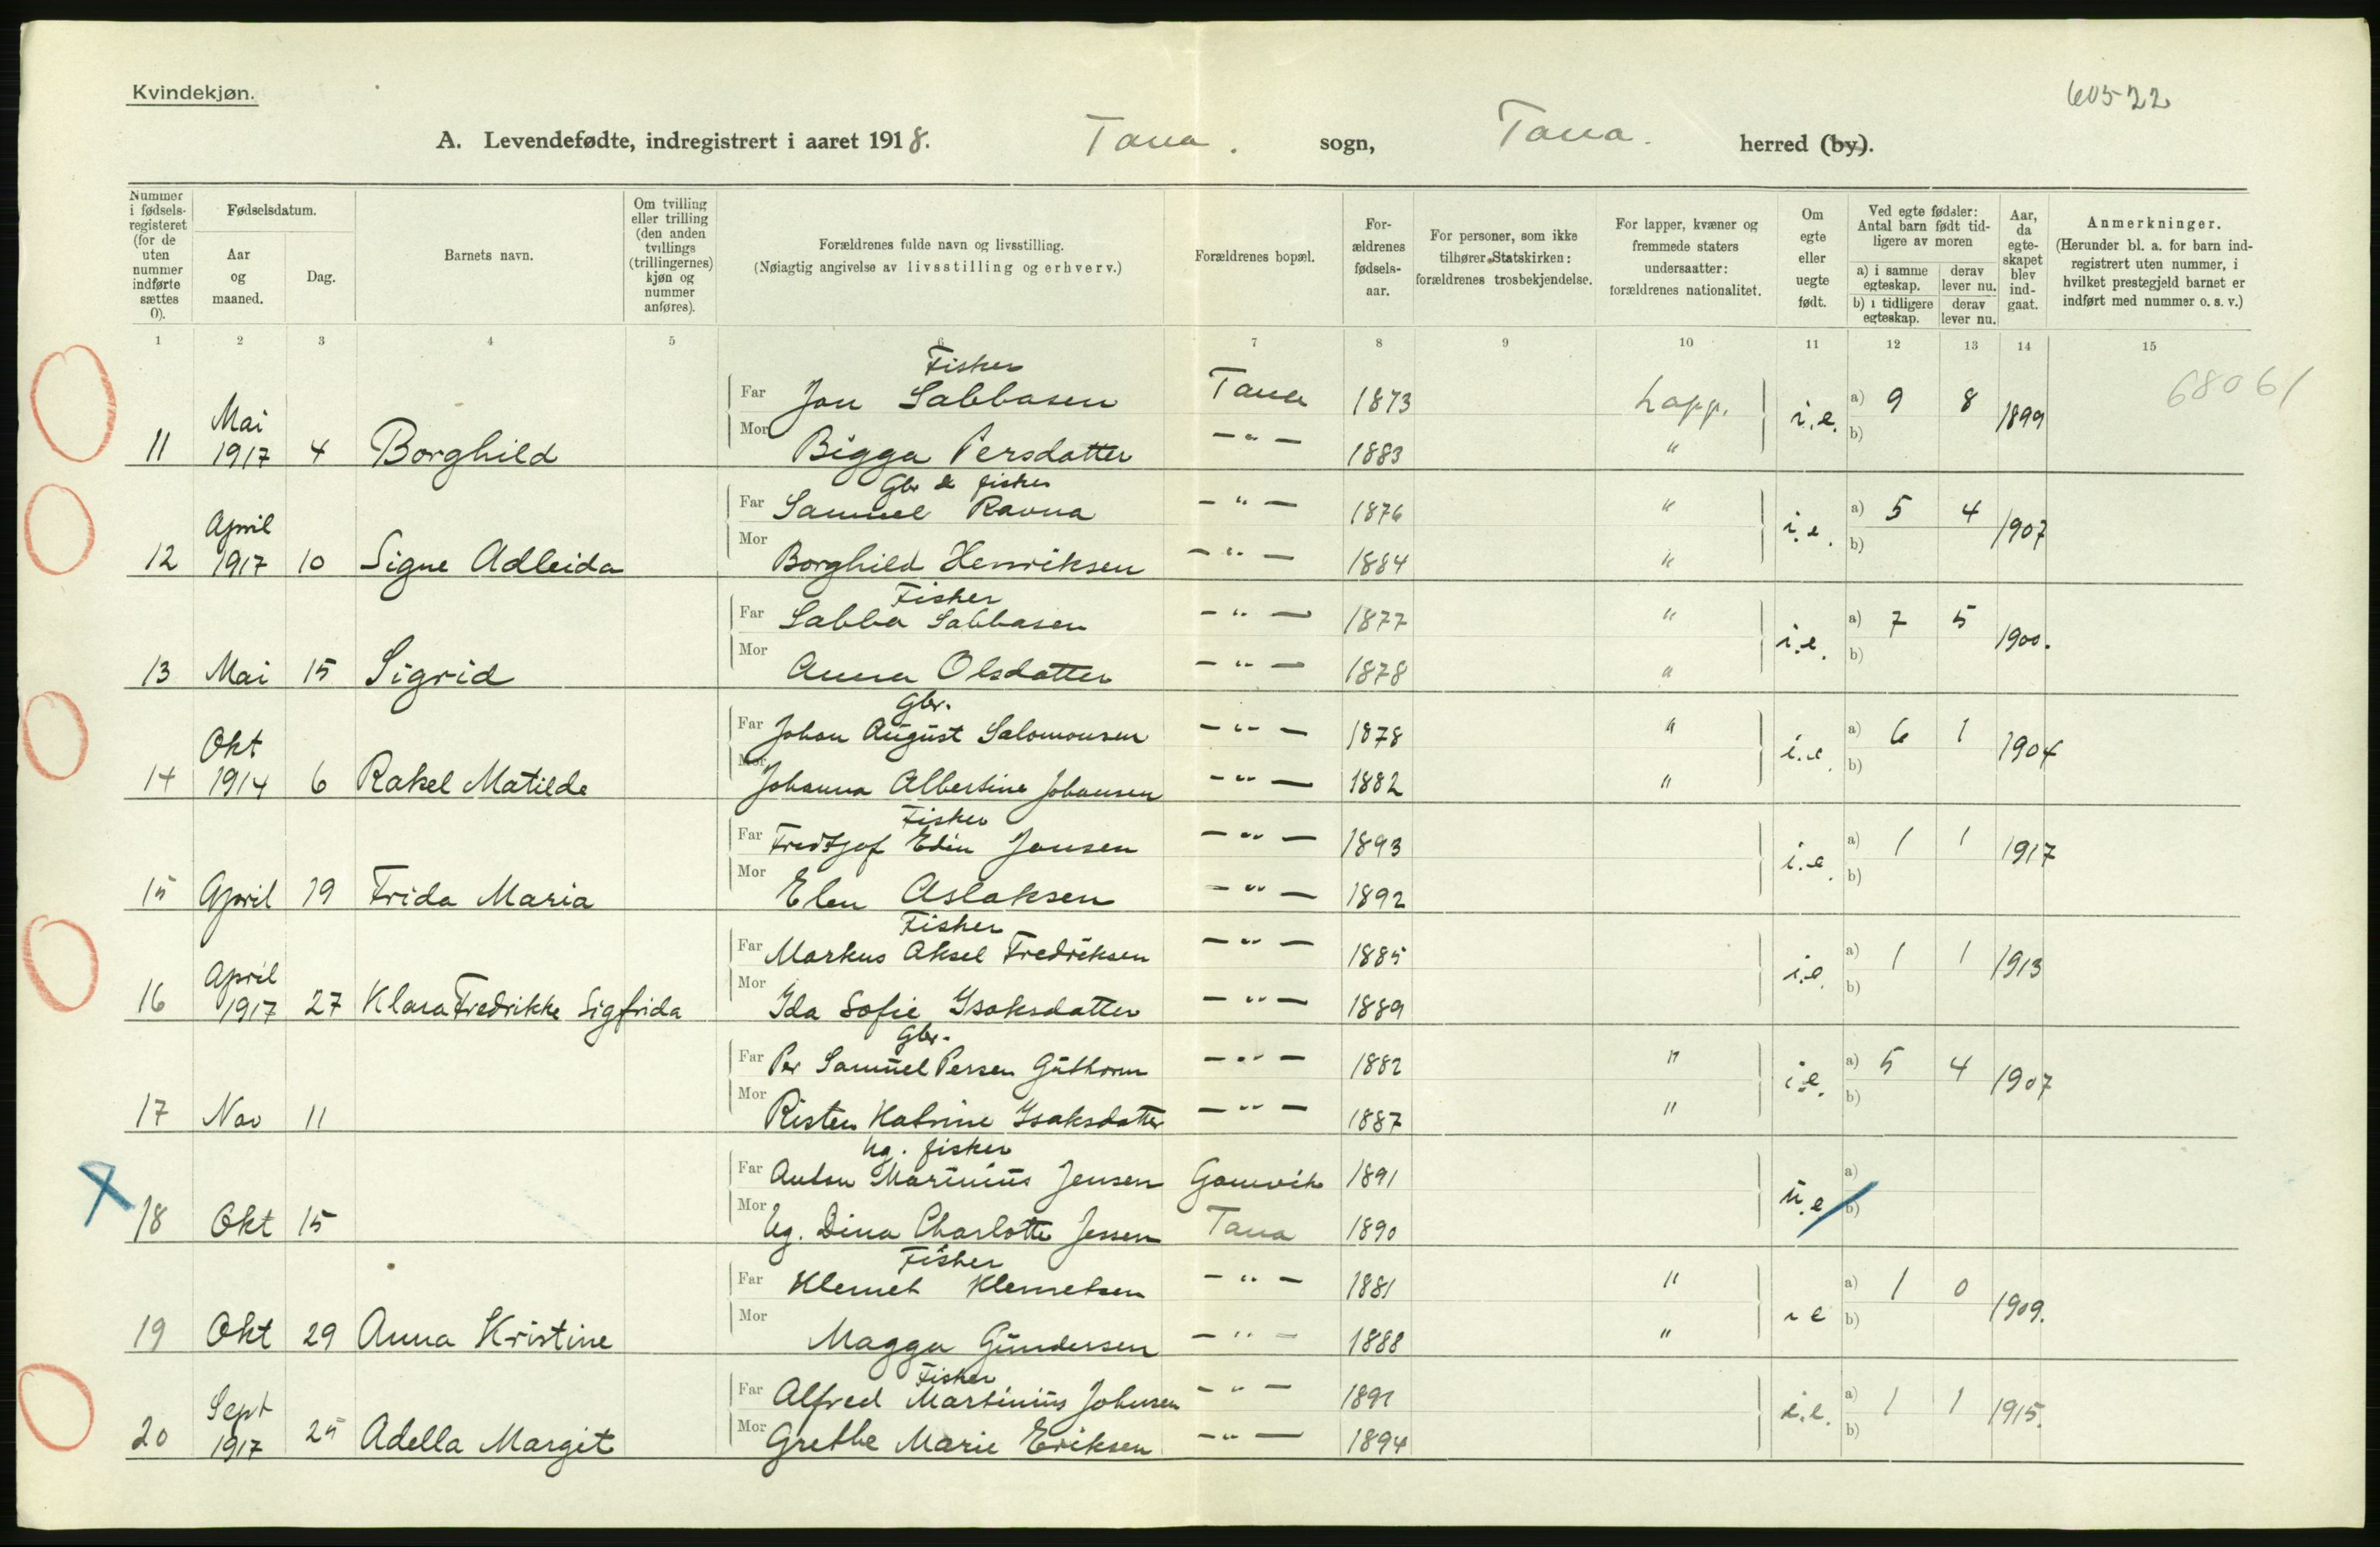 Kvindekjøn.
60522
A. Levendefødte, indregistrert i aaret 1918. Tana. sogn, Tana. herred (by).
Nummer i fødselsregisteret (for de uten nummer indførte sættes 0).
Fødselsdatum.
Aar og maaned.
Dag.
Barnets navn.
Om tvilling eller trilling (den anden tvillings (trillingernes) kjøn og nummer anføres).
Forældrenes fulde navn og livsstilling.
(Nøiagtig angivelse av livsstilling og erhverv.)
Forældrenes bopæl.
Forældrenes fødselsaar.
For personer, som ikke tilhører Statskirken: forældrenes trosbekjendelse.
For lapper, kvæner og fremmede staters undersaatter: forældrenes nationalitet.
Om egte eller uegte født.
Ved egte fødsler: Antal barn født tidligere av moren
a) i samme egteskap. derav lever nu.
b) i tidligere egteskap. derav lever nu.
Aar, da egteskapet blev indgaat.
Anmerkninger.
(Herunder bl. a. for barn indregistrert uten nummer, i hvilket prestegjeld barnet er indført med nummer o. s. v.)
1 2 3 4 5 6 7 8 9 10 11 12 13 14 15
Fisker
Far Jon Sabbasen Tana 1873 Lapp. a) 9 8 68061
Mai
11 1917 4 Borghild Mor Bigga Persdatter -"- 1883 " i.e. b) 1899
Gbr & fisker
Far Samuel Ravna -"- 1876 " a) 5 4
April
12 1917 10 Signe Adleida Mor Borghild Henriksen -"- 1884 " i.e. b) 1907
Fisker
Far Sabba Sabbasen -"- 1877 " a) 7 5
13 Mai 15 Sigrid Mor Anna Olsdatter -"- 1878 " i.e. b) 1900.
Gbr.
Far Johan August Salomonsen -"- 1878 " a) 6 1
Okt
14 1914 6 Rakel Matilde Mor Johanna Albertine Johansen -"- 1882 " i.e. b) 1904
Fisker
Far Fredtjof Edin Jonsen -"- 1893 a) 1 1
15 April 19 Frida Maria Mor Elen Aslaksen -"- 1892 i.e. b) 1917
Fisker
Far Markus Aksel Fredriksen -"- 1885 a) 1 1
April
16 1917 27 Klara Fredrikke Sigfrida Mor Ida Sofie Isaksdatter -"- 1889 i.e. b) 1913
Gbr.
Far Per Samuel Persen Guthorm -"- 1882 " a) 5 4
17 Nov 11 Mor Risten Katrine Isaksdatter -"- 1887 " i.e. b) 1907
Ug. fisker
Far Anton Marinius Jensen Gamvik 1891 a)
18 Okt 15 Mor Ug. Dina Charlotte Jessen Tana 1890 u.e b)
Fisker
Far Klemet Klemetsen -"- 1881 " a) 1 0
19 Okt 29 Anna Kristine Mor Magga Gundersen -"- 1888 " i e b) 1909.
Fisker
Far Alfred Martinius Johnsen -"- 1891 a) 1 1
Sept
20 1917 25 Adella Margit Mor Grethe Marie Eriksen -"- 1894 i.e. b) 1915.